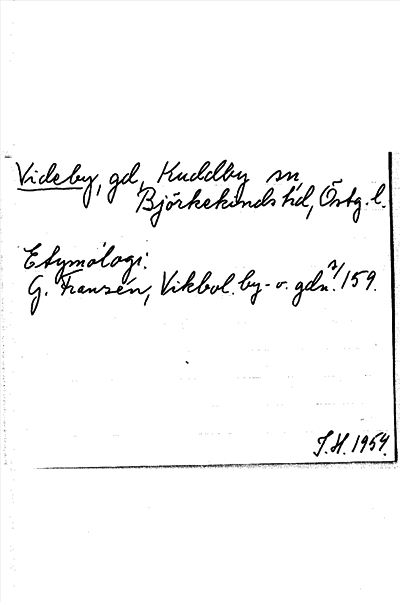 Videby, gd, Kuddby sn,
Björkekinds hd, Östg. l.
Etymologi:
G. Franzén, Vikbol. by- o. gdn. s/159.
J.H. 1954.